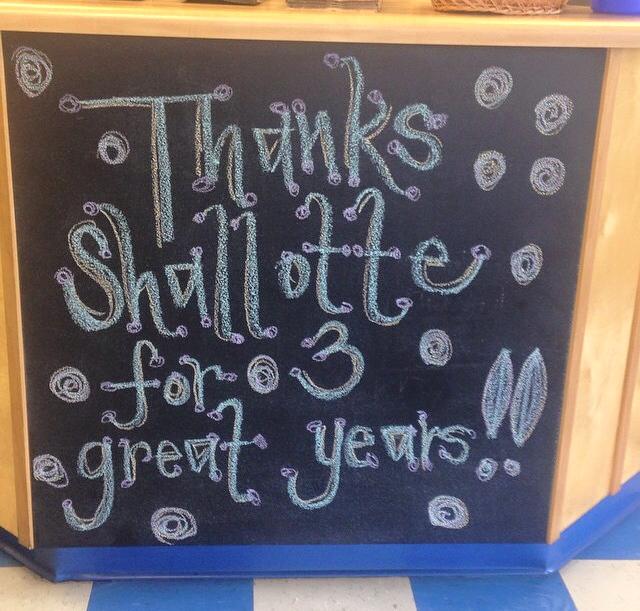 Thanks
Shallotte
for 3
great years!!